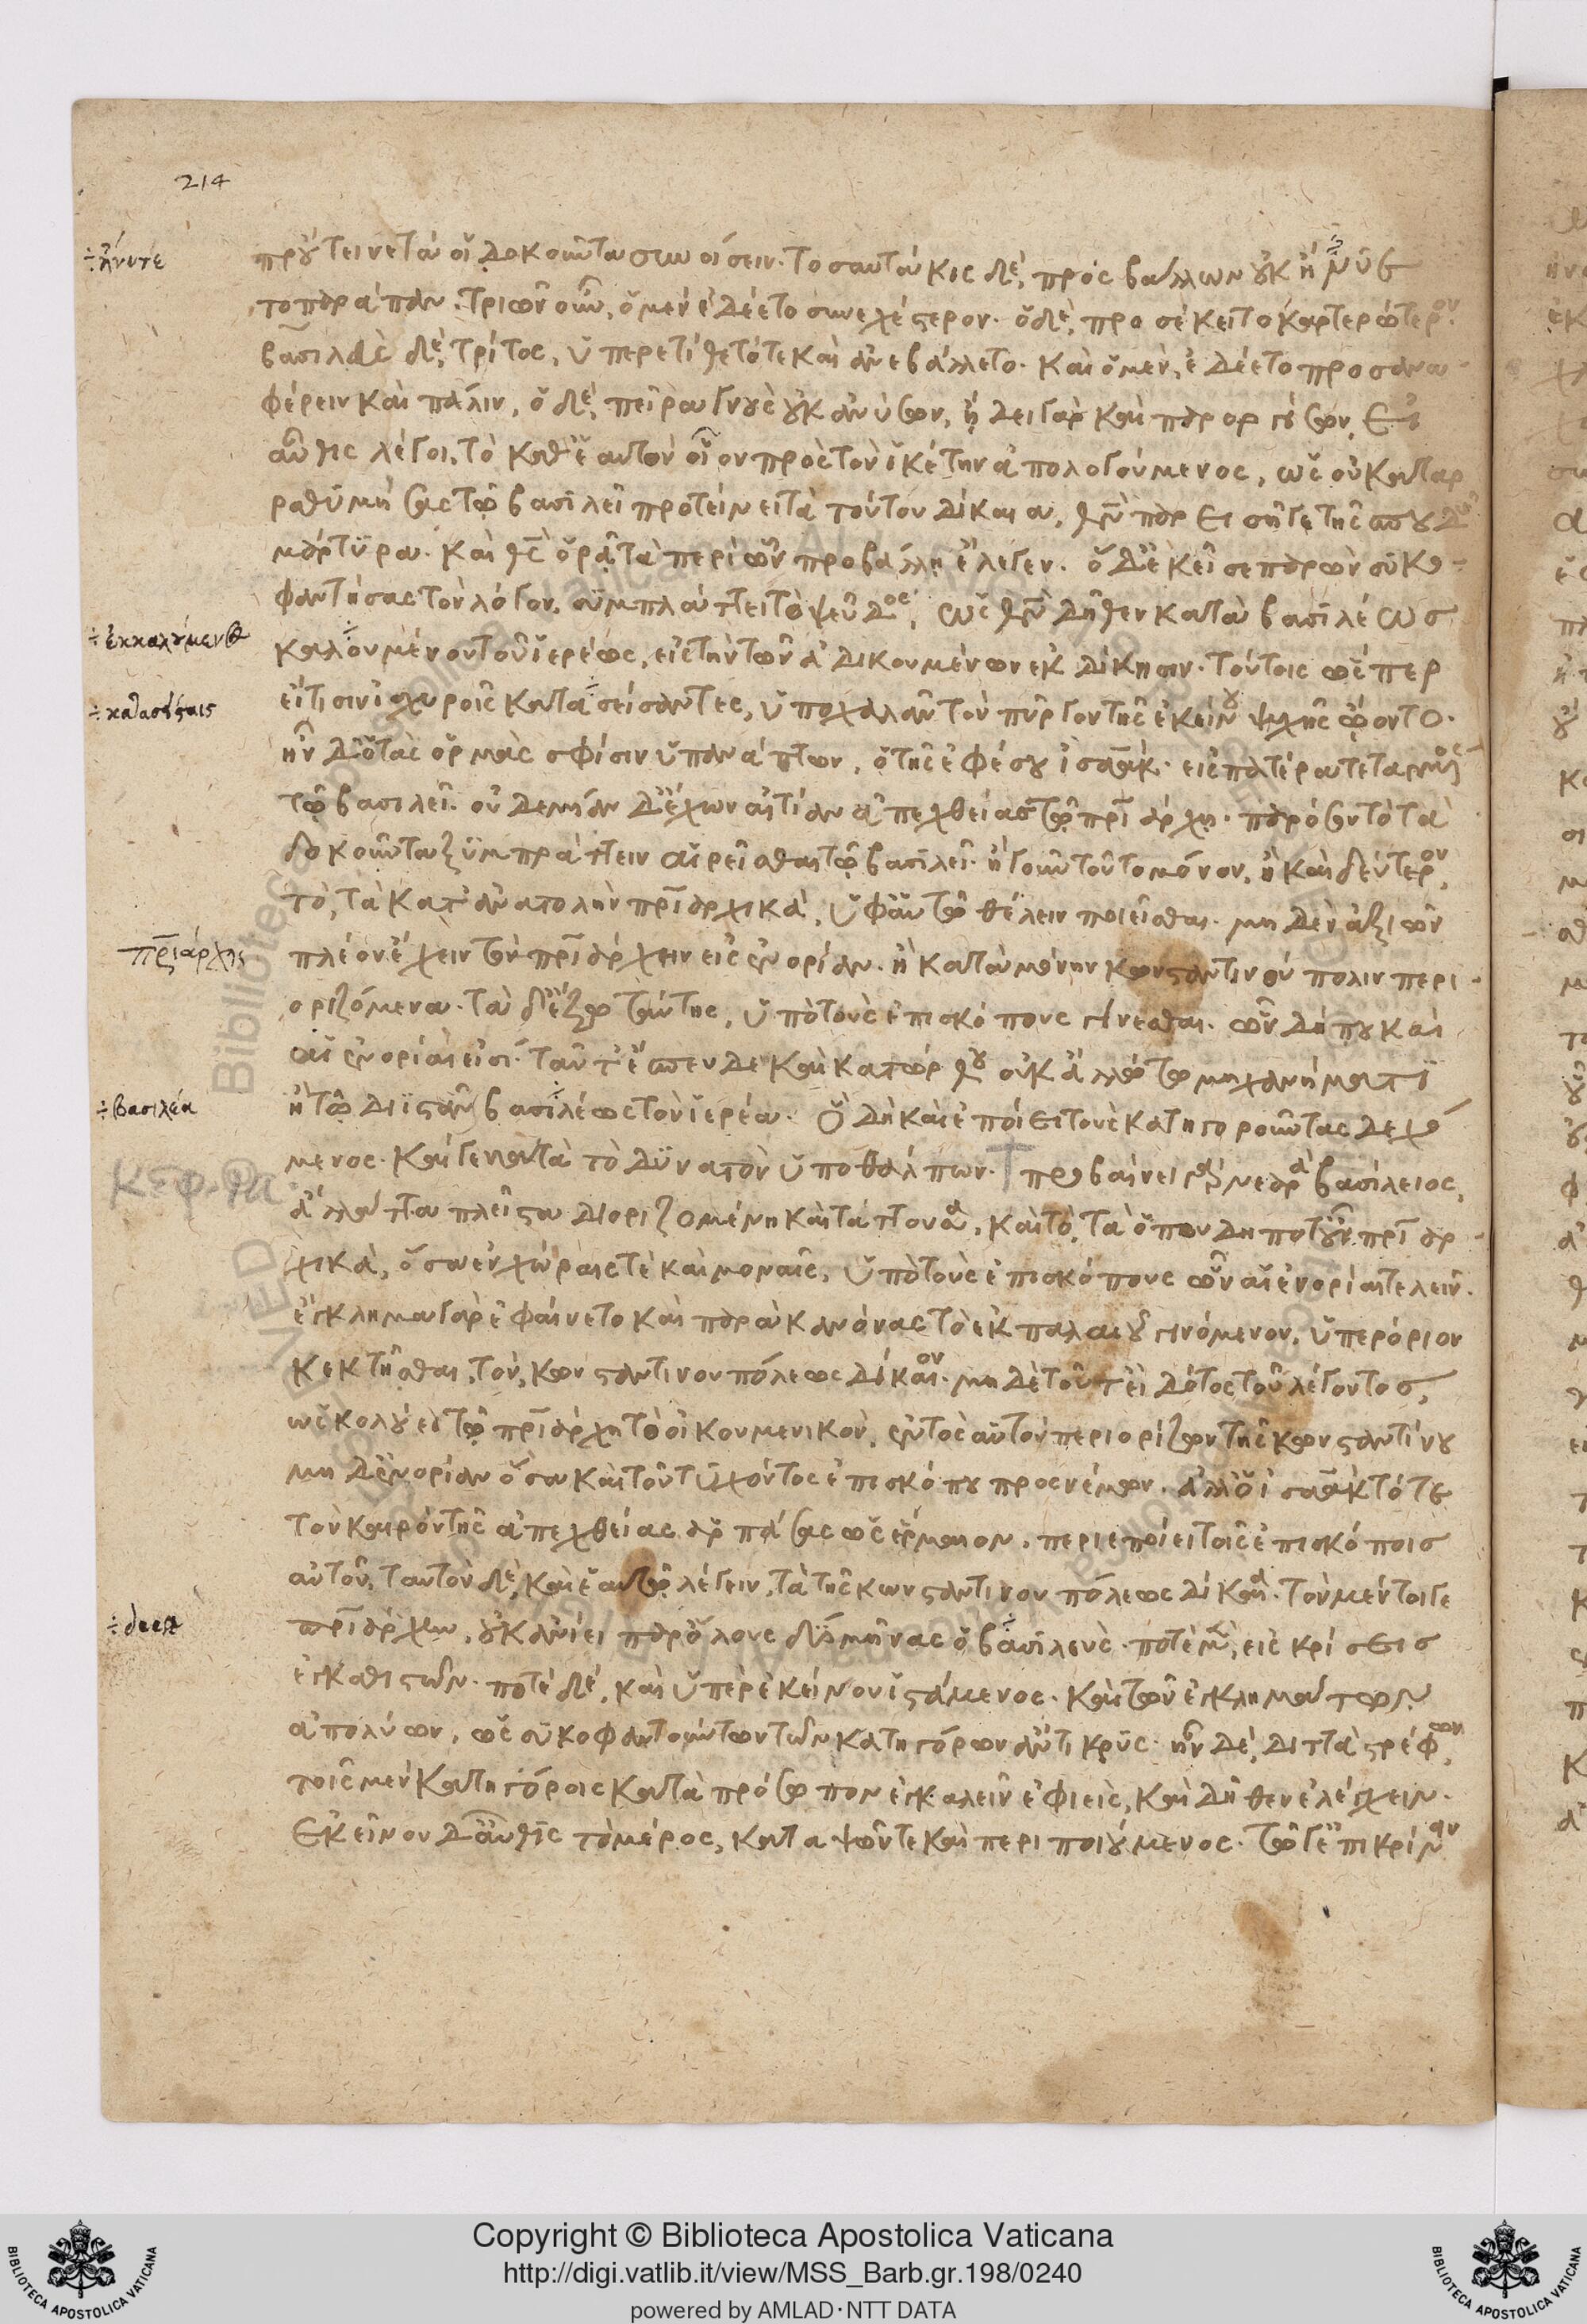 214
÷ ἤνυτε
προὔτεινε τὰ οἷ δοκοῦντα συνοίσειν. τοσαυτάκις δὲ, προσβαλλων οὐκ ἤνυσε
τοπαράπαν. τριῶν οὖν, ὁ μὲν ἐδέετο συνεχέστερον. ὁ δὲ, προσέκειτο καρτερώτερον.
βασιλεὺς δὲ, τρίτος, ὑπερετίθετό τε καὶ ἀνεβάλλετο. καὶ ὁ μὲν, ἐδέετο προσανα-
φέρειν καὶ πάλιν, ὁ δὲ, πείρας γνοὺς οὐκ ἀνύσων, ᾔδει γὰρ καὶ παρορ
αὖθις λέγοι, τὸ καθ' ἑαυτὸν οἷον πρὸς τὸν ἱκέτην ἀπολογούμενος, ὡς οὐ καταρ
ραθυμήσας τῷ βασιλεῖ προτείνει τὰ τούτου δίκαια, θεὸν παρεισῆγε τῆς σπουδῆς
μάρτυρα. καὶ θεὸς ὁρᾷ τὰ περὶ ὧν προβάλλῃ ἔλεγεν. ὁ δ' ἐκεῖσε παρὼν συκο-
φαντήσας τὸν λόγον, συμπλάττει τὸ ψεῦδος, ὡς θεὸν δῆθεν κατὰ βασιλέως
÷ ἐκκαλούμενον
καλουμένου τοῦ ἱερέως, εἰς τὴν τῶν ἀδικουμένων ἐκδίκησιν. τούτοις ὥσπερ
÷ κατασείσαντες
εἴ τισιν ἰσχυροῖς κατασείσαντες, ὑποχαλᾶν τὸν πύργον τῆς ἐκείνου ψυχῆς ᾤοντο.
ἦν δ' ὁ τὰς ὁρμὰς σφίσιν ὑπανάπτων, ὁ τῆς ἐφέσου ἰσαάκ. εἰς πατέρα τεταγμένος
τῷ βασιλεῖ. οὐδεμίαν δ' ἔχων αἰτίαν ἀπεχθείας τῷ πριάρχῃ. παρόσον τὸ τὰ
δοκοῦντα ξυμπράττειν αἱρεῖσθαι τῷ βασιλεῖ. ἢ γοῦν τοῦτο μόνον, ἢ καὶ δεύτερον,
τὸ, τὰ κατ' ἀνατολὴν πριαρχικὰ, ὑφ' ἑαυτῷ θέλειν ποιεῖσθαι. μηδὲν ἀξιῶν
πριάρχης
πλέον ἔχειν τὸν πριάρχην εἰς ἐνορίαν. ἢ κατὰ μόνην κωνσταντινούπολιν περι-
οριζόμενα. τὰ δ' ἔξω ταύτης, ὑπὸ τοὺς ἐπισκόπους γίνεσθαι. ὧν δήπου καὶ
αἱ ἐνορίαι εἰσί. ταῦτ' ἔσπευδε καὶ κατώρθου οὐκ ἄλλῳ τῳ μηχανήματι
÷ βασιλέα
ἢ τῷ διϊστᾶν βασιλέως τὸν ἱερέα. ὃ δὴ καὶ ἐποίει τοὺς κατηγοροῦντας δεχό
μενος. καὶ γε κατὰ τὸ δυνατὸν ὑποθάλπων. † προβαίνει γοῦν νεαρὰ βασίλειος,
ΚΕΦ.
ἄλλα τε πλεῖστα διοριζομένη καὶ τάττουσα, καὶ τὸ, τὰ ὅπου δήποτ' οὖν πριαρ-
χικὰ, ὅσα ἐν χώραις τὲ καὶ μοναῖς, ὑπὸ τοὺς ἐπισκόπους ὧν αἱ ἐνορίαι τελεῖν.
ἔγκλημα γὰρ ἐφαίνετο καὶ παρὰ κανόνας τὸ ἐκ παλαιοῦ γινόμενον, ὑπερόριον
κεκτῆσθαι, τὸν, κωνσταντινουπόλεως δίκαιον. μηδὲ τοῦτ' εἰδότος τοῦ λέγοντος,
ὡς κολούει τῷ πριάρχῃ τὸ οἰκουμενικὸν, ἐντὸς αὐτὸν περιορίζων τῆς κωνσταντίνου
μηδ' ἐνορίαν ὅσα καὶ τοῦ τυχόντος ἐπισκόπου προσνέμων. ἀλλ' ὁ ἰσαὰκ τότε
τὸν καιρὸν τῆς ἀπεχθείας ἁρπάσας ὡς ἕρμαιον, περιεποίει τοῖς ἐπισκόποις
αὐτοῦ, ταυτὸν δὲ, καὶ ἑαυτῷ λέγειν, τὰ τῆς κωνσταντινουπόλεως δίκαια. τὸν μέντοι γε
÷ deest
πριάρχην, οὐκ ἀνίει παρ' ὅλους δύο μῆνας ὁ βασιλεὺς. ποτὲ μὲν, εἰς κρίσεις
ἐγκαθιστῶν. ποτὲ δὲ, καὶ ὑπὲρ ἐκείνου ἱστάμενος. καὶ τῶν ἐγκλημάτων
ἀπολύων, ὡς συκοφαντούντων τῶν κατηγόρων ἄντικρυς. ἦν δὲ, διττὰ στρέφων,
τοῖς μὲν κατηγόροις κατὰ πρόσωπον ἐγκαλεῖν ἐφιεὶς, καὶ δῆθεν ἐλέγχειν.
ἐκεῖνον δ' αὖθις τὸ μέρος, καταψῶν τε καὶ περιποιούμενος. τῷ γ' ἐπικρίναν
Copyright © Biblioteca Apostolica Vaticana
http://digi.vatlib.it/view/MSS_Barb.gr.198/0240
powered by AMLAD·NTT DATA
BIBLIOTECA APOSTOLICA VATICANA
BIBLIOTECA APOSTOLICA VATICANA